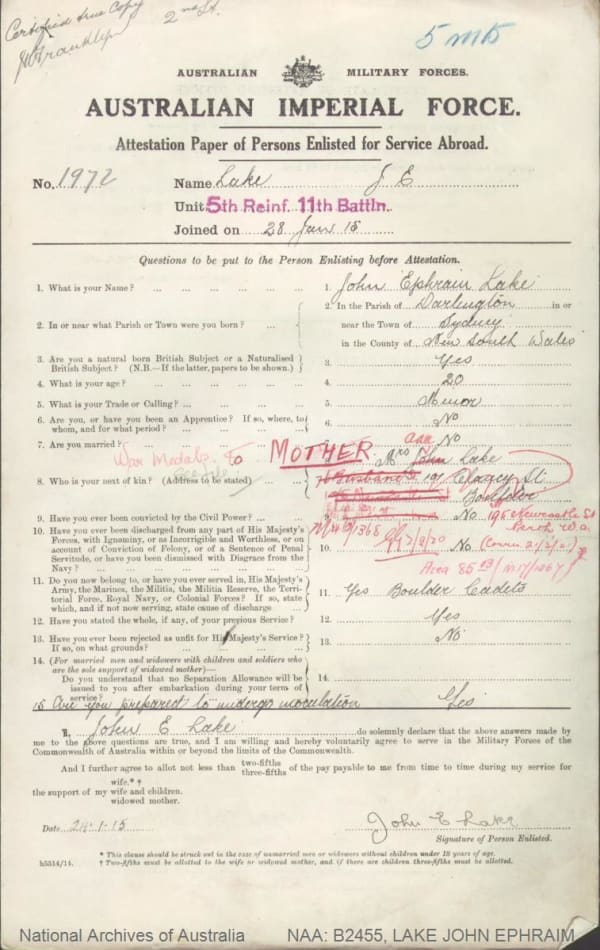 Certified true Copy
2nd Lt.
5 mb
AUSTRALIAN MILITARY FORCES.
AUSTRALIAN IMPERIAL FORCE.
Attestation Paper of Persons Enlisted for Service Abroad.
No. 1972 Name Lake J E
Unit 5th Reinf. 11th Battln.
Joined on 28 Jan 15
Questions to be put to the Person Enlisting before Attestation.
1. What is your Name? ... 1. John Ephraim Lake
2. In or near what Parish or Town were you born? ... 2. In the Parish of Darlington in or
near the Town of Sydney
in the County of New South Wales
3. Are you a natural born British Subject or a Naturalised
British Subject? (N.B.—If the latter, papers to be shown.) 3. Yes
4. What is your age? ... 4. 20
5. What is your Trade or Calling? ... 5. Minor
6. Are you, or have you been an Apprentice? If so, where, to
whom, and for what period? ... 6. No
7. Are you married? ... No
War Medals to MOTHER
8. Who is your next of kin? (Address to be stated) ... Mrs John Lake
Clancy St
Boulder
195 Newcastle St
Perth W.a.
9. Have you ever been convicted by the Civil Power? ... No
10. Have you ever been discharged from any part of His Majesty's
Forces, with Ignominy, or as Incorrigible and Worthless, or on
account of Conviction of Felony, or of a Sentence of Penal
Servitude, or have you been dismissed with Disgrace from the
Navy? ... 10. No
11. Do you now belong to, or have you ever served in, His Majesty's
Army, the Marines, the Militia, the Militia Reserve, the Terri-
torial Force, Royal Navy, or Colonial Forces? If so, state
which, and if not now serving, state cause of discharge ... 11. Yes Boulder Cadets
12. Have you stated the whole, if any, of your previous Service? 12. Yes
13. Have you ever been rejected as unfit for His Majesty's Service?
If so, on what grounds? ... 13. No
14. (For married men and widowers with children and soldiers who
are the sole support of widowed mother)—
Do you understand that no Separation Allowance will be
issued to you after embarkation during your term of
service? 14.
15 Are you prepared to undergo inoculation Yes
I, John E Lake do solemnly declare that the above answers made by
me to the above questions are true, and I am willing and hereby voluntarily agree to serve in the Military Forces of the
Commonwealth of Australia within or beyond the limits of the Commonwealth.
And I further agree to allot not less than two-fifths three-fifths of the pay payable to me from time to time during my service for
wife,* †
the support of my wife and children.
widowed mother.
John E Lake
Date 28.1.15 Signature of Person Enlisted.
* This clause should be struck out in the case of unmarried men or widowers without children under 18 years of age.
b5514/14. † Two-fifths must be allotted to the wife or widowed mother, and if there are children three-fifths must be allotted.
National Archives of Australia NAA: B2455, LAKE JOHN EPHRAIM